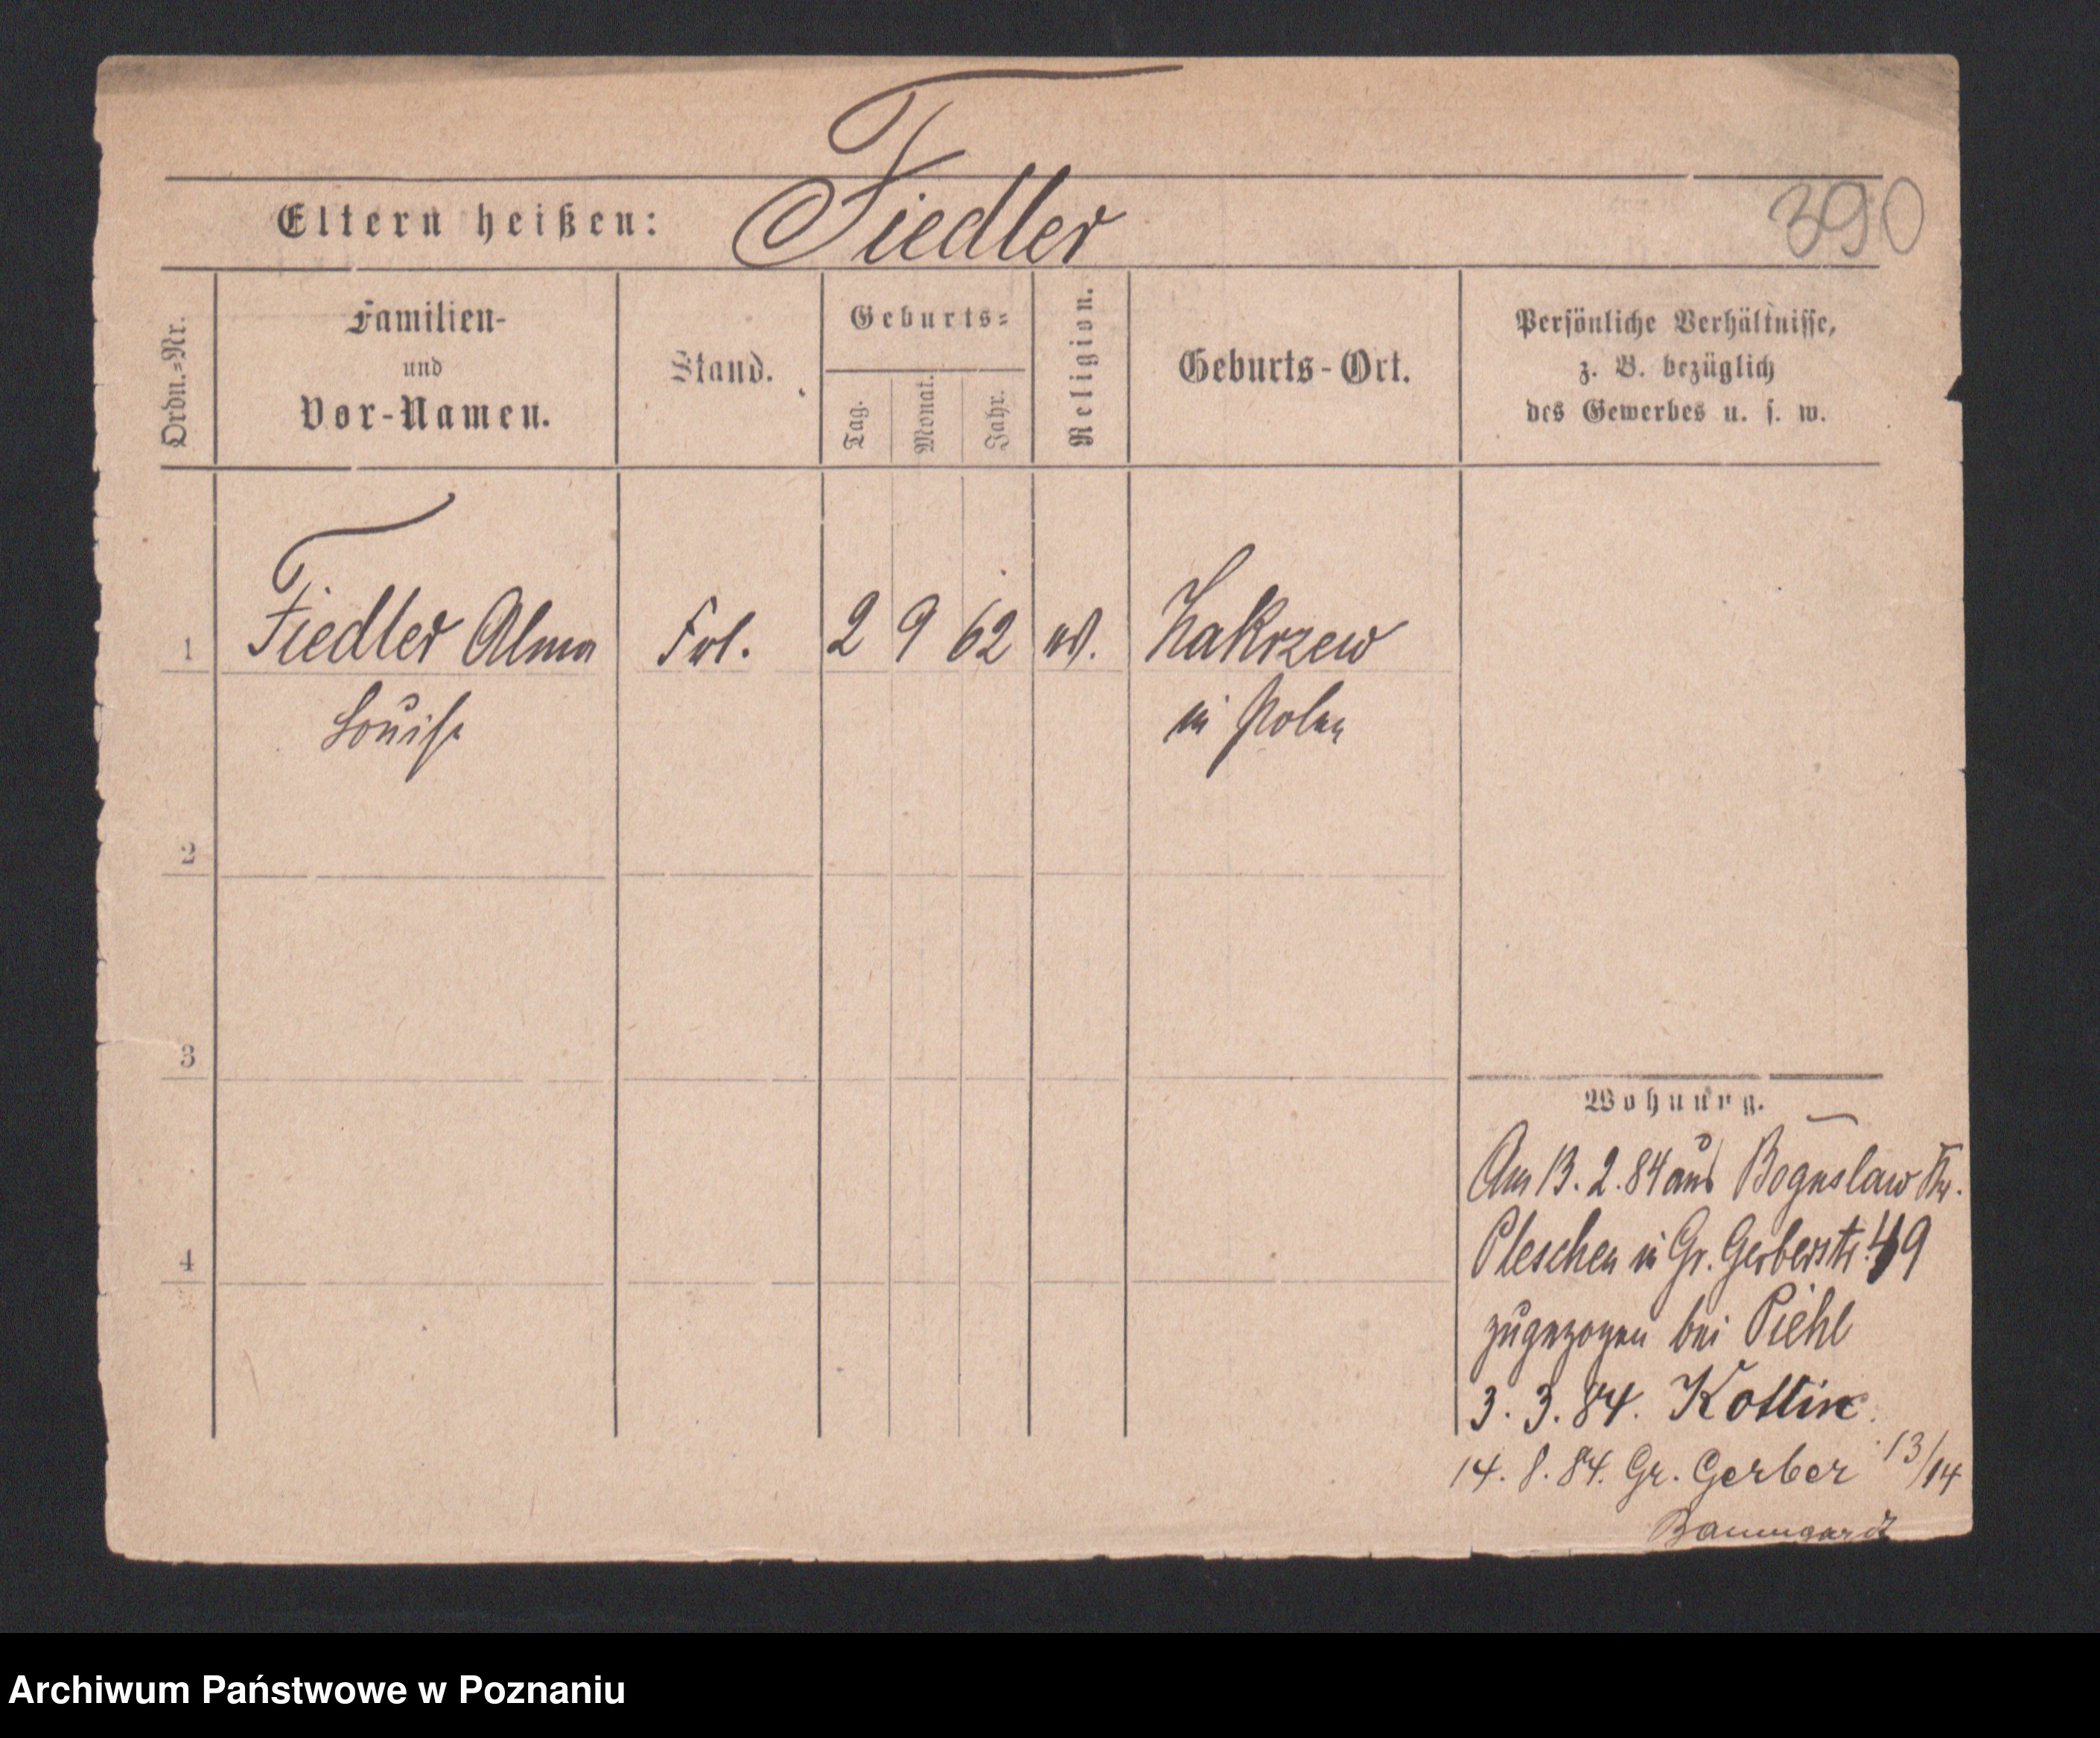 Fiedler
390
Eltern heißen:
Ordn.-Nr.
Familien-
und
Vor-Namen.
Stand.
Geburts-
Tag.
Monat.
Jahr.
Religion.
Geburts-Ort.
Persönliche Verhältnisse,
z. B. bezüglich
des Gewerbes u. s. w.
1 Fiedler Alma Frl. 2 9 62 ev. Zakrzew
Louise in Polen
2
3
Wohnung.
Am 13. 2. 84 aus Boguslaw Kr.
4
Pleschen in Gr. Gerberstr. 49
zugezogen bei Piehl
3. 3. 84.
14. 8. 84. Gr. Gerber 13/14
Baumgardt
Archiwum Państwowe w Poznaniu